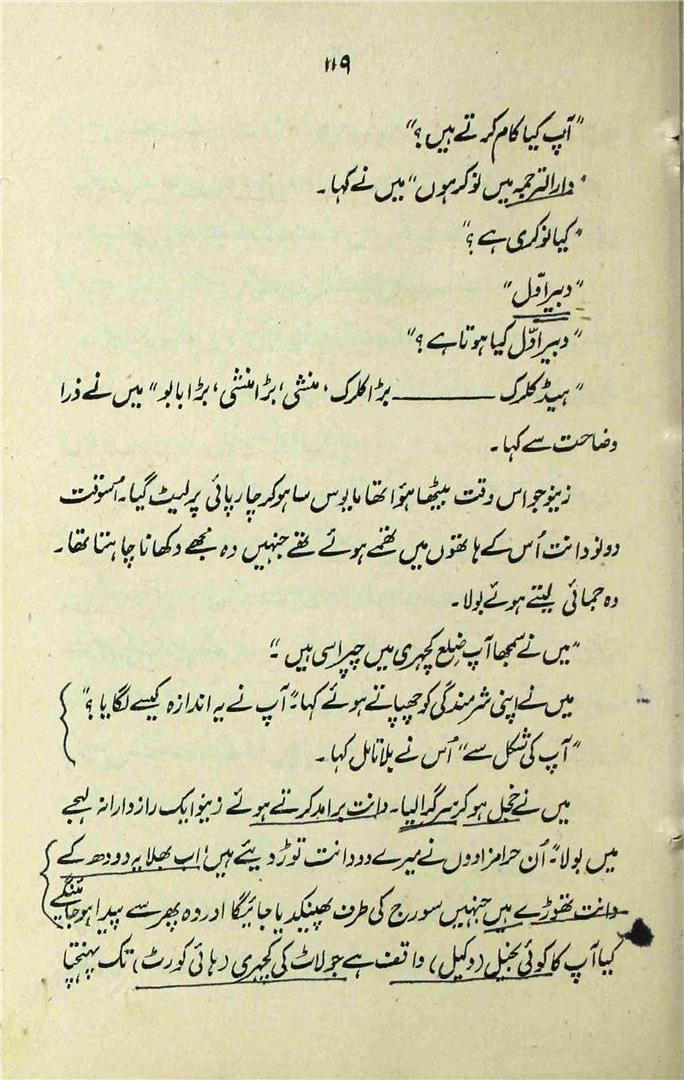 ۱۱۹
"آپ کیا کام کرتے ہیں؟"
"دارالترجمہ میں نوکر ہوں" میں نے کہا۔
"کیا نوکری ہے؟"
"دبیرِ اوّل"
"دبیرِ اوّل کیا ہوتا ہے؟"
"ہیڈ کلرک ــــــــ بڑا کلرک، منشی، بڑا منشی، بڑا بابو" میں نے ذرا
وضاحت سے کہا۔
زینو جو اس وقت بیٹھا ہوُا تھا مایوس سا ہو کر چارپائی پر لیٹ گیا۔ اسوقت
دونو دانت اُس کے ہاتھوں میں تھمے ہوئے تھے جنہیں وہ مجھے دکھانا چاہتا تھا۔
وہ جمائی لیتے ہوئے بولا۔
"میں نے سمجھا آپ ضِلع کچہری میں چپراسی ہیں۔"
میں نے اپنی شرمندگی کو چھپاتے ہوئے کہا۔ "آپ نے یہ اندازہ کیسے لگایا؟"
"آپ کی شکل سے" اُس نے بلا تامل کہا۔
میں نے خجل ہو کر سر گرا لیا۔ دانت برامد کرتے ہوئے زینو ایک رازدارانہ لہجے
میں بولا۔ "اُن حرامزادوں نے میرے دو دانت توڑ دیئے ہیں! اب بھلا یہ دودھ کے
دانت تھوڑے ہیں جنہیں سورج کی طرف پھینکدیا جائیگا اور وہ پھر سے پیدا ہو جائینگے
کیا آپ کا کوئی بخیل (وکیل) واقف ہے جو لاٹ کی کچہری (ہائی کورٹ) تک پہنچتا